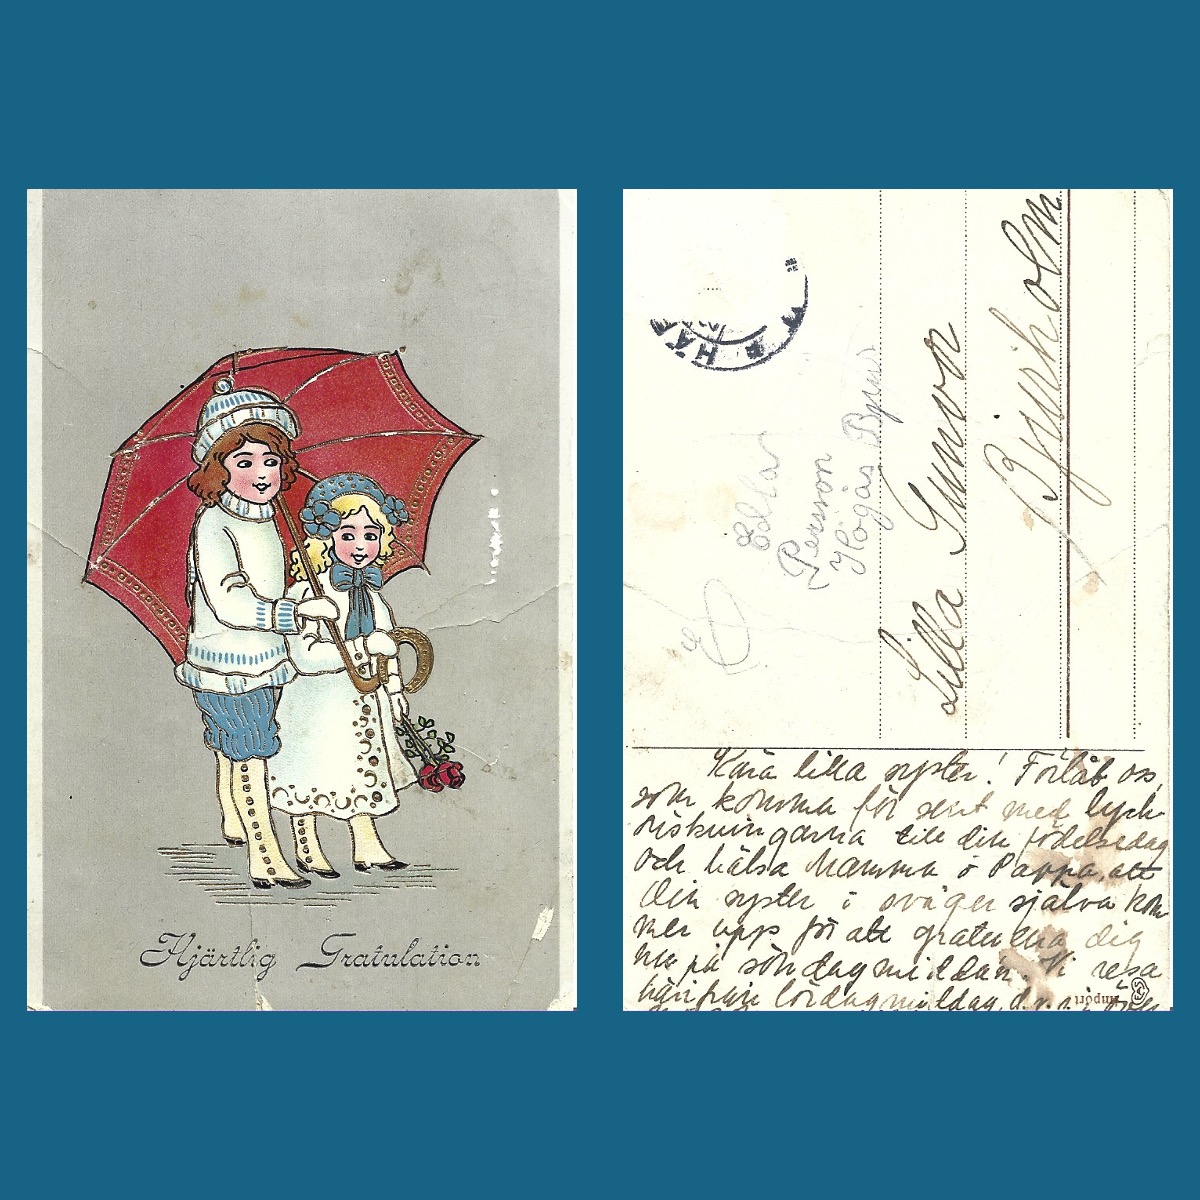 Hjärtlig Gratulation
HÄ
Edla
Persson
Högås Bjur
Lilla Gunvor
Bjurholm
Kära lilla syster! Förlåt oss,
som komma för sent med lyck-
önskningarna till din födelsedag
och hälsa Mamma o Pappa, att
din syster i svåger själva kom
mer upp för att gratulera dig
nu på söndagmiddan. Vi resa
härifrån lördagmiddag, d.v.s.
Import